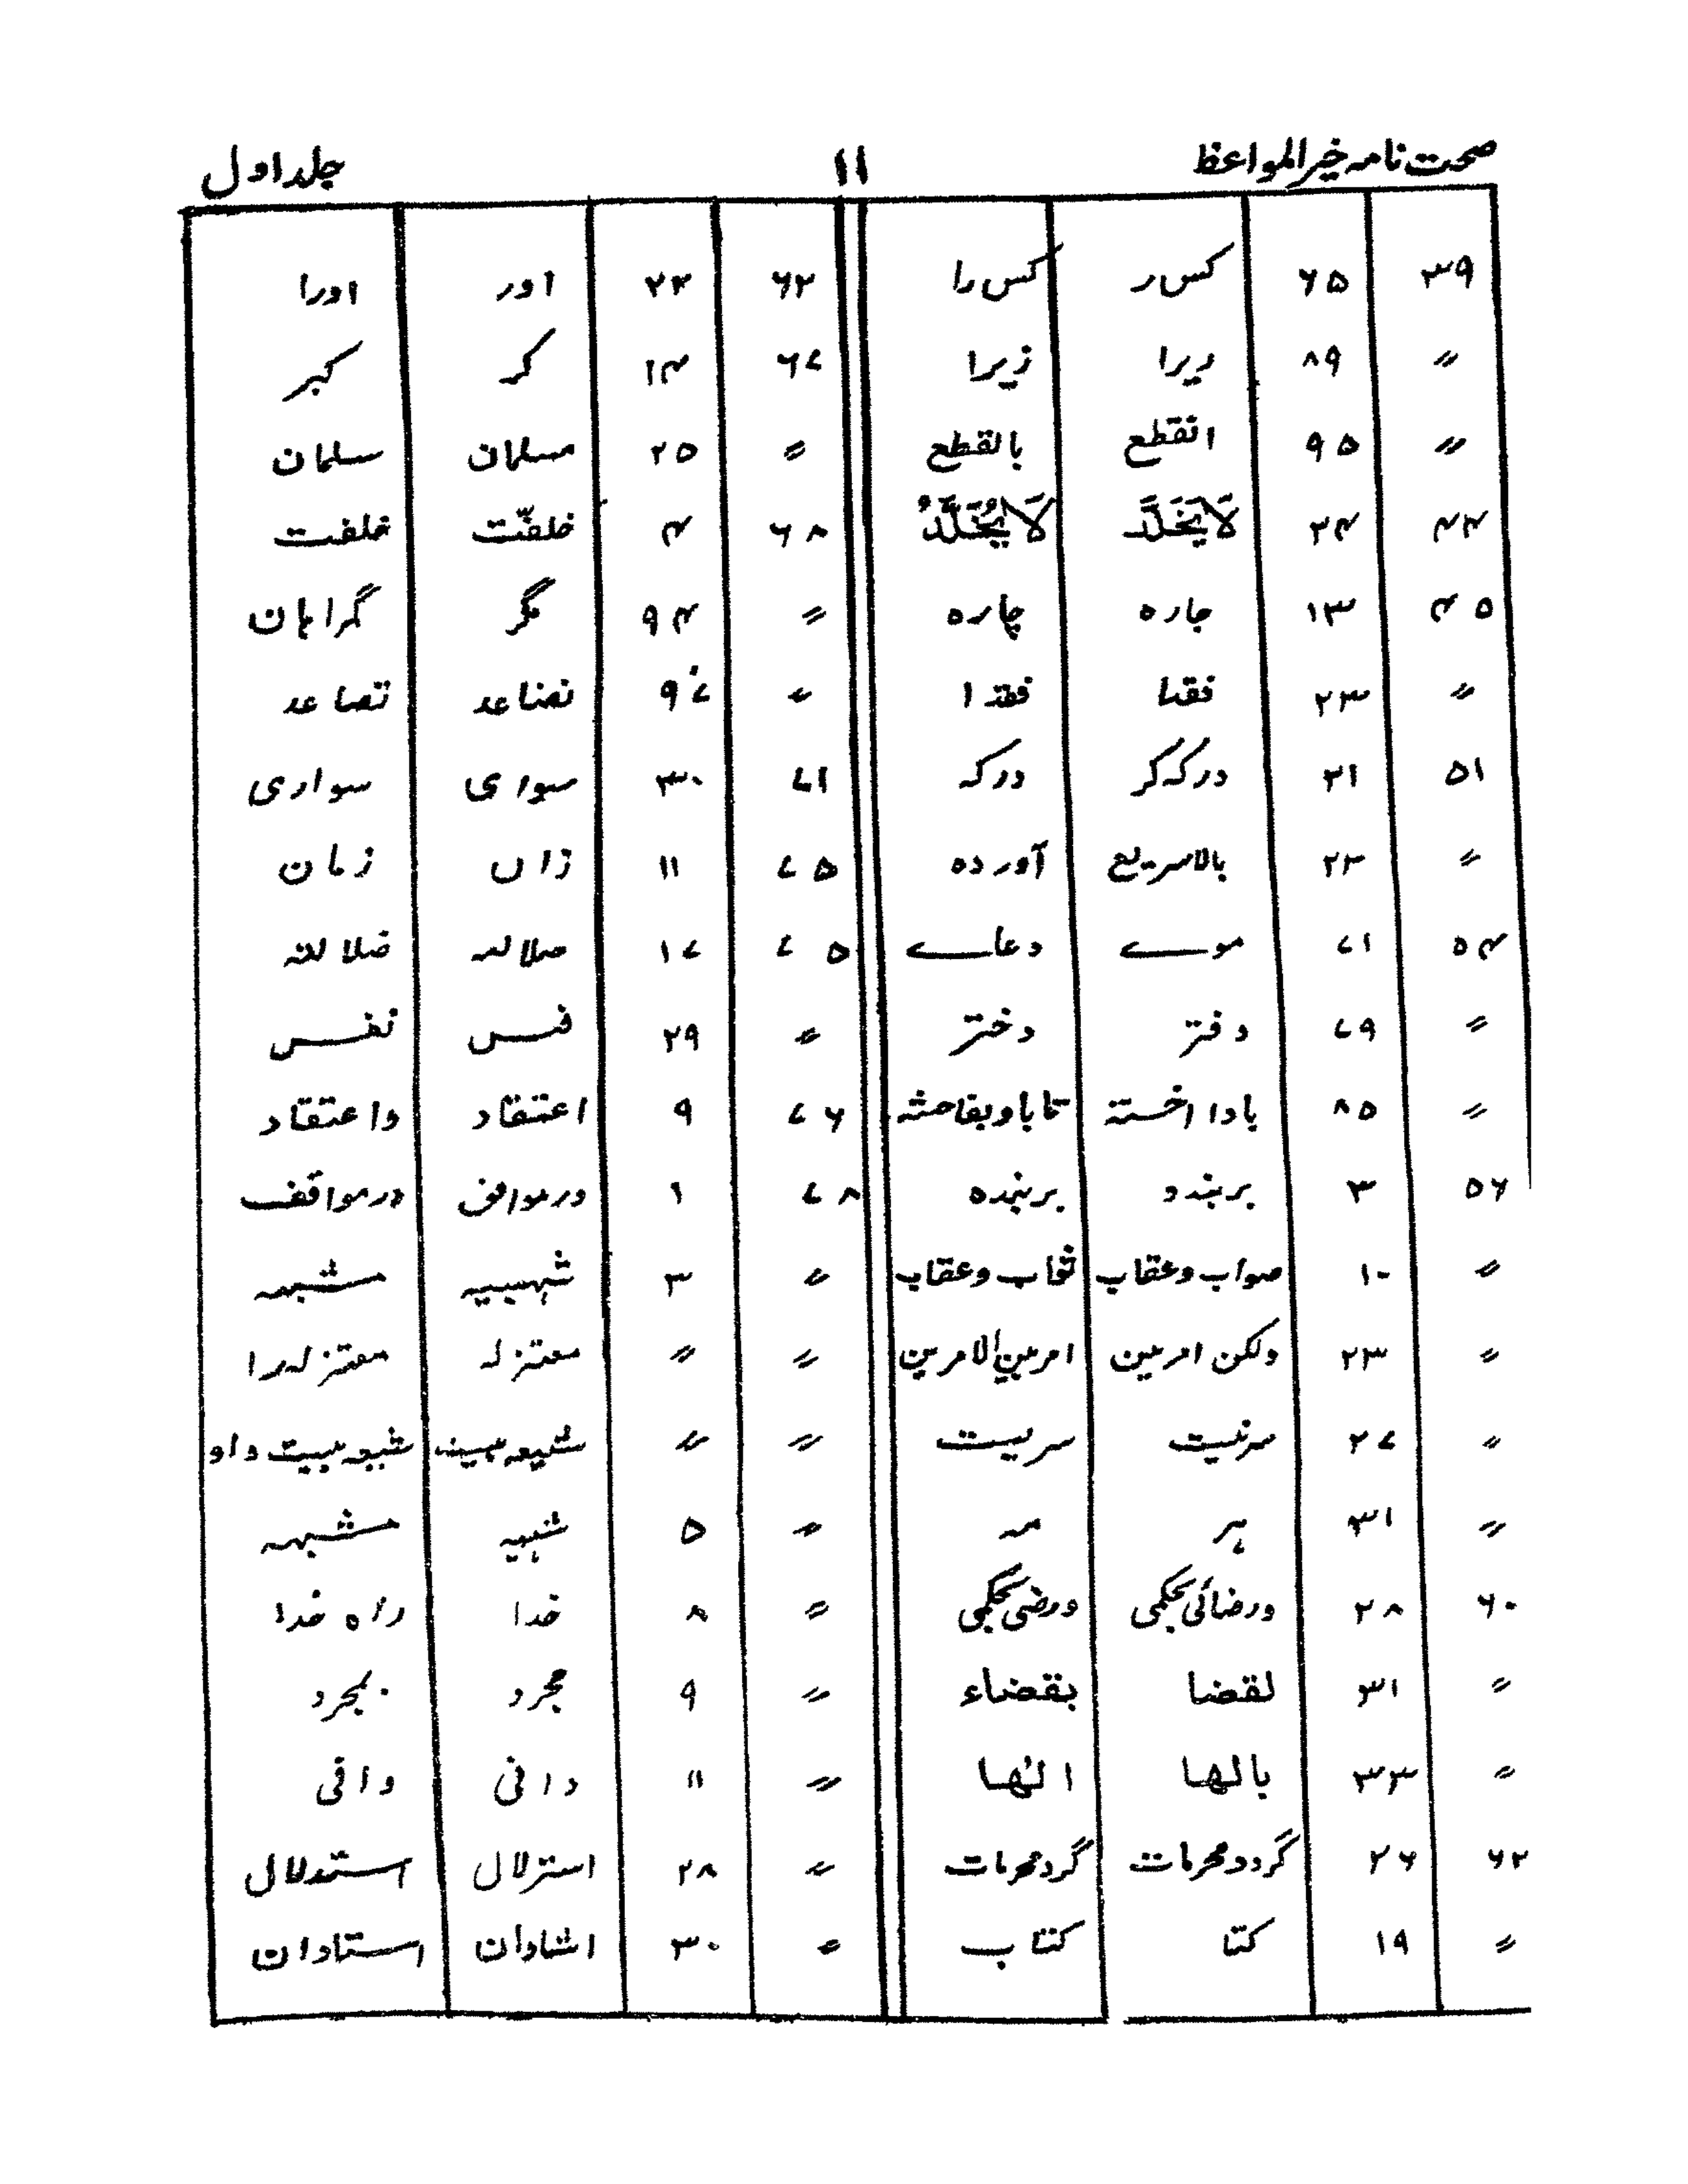 صحت نامہ خیر المواعظ ۱۱ جلد اول
۳۹ ۶۵ کس ر کس را ۶۲ ۲۳ اور اورا
〃 ۸۹ ریرا زیرا ۶۷ ۱۴ کر کبر
〃 ۹۵ انقطع بالقطع 〃 ۲۵ مسلمان سلمان
۴۴ ۲۴ لَا یَخَلَّدَ لَا یُخَلَّدُ ۶۸ ۴ خلفتّ خلفت
۴۵ ۱۳ جارہ چارہ 〃 ۹۴ گر گمراہان
〃 ۲۳ فقدا 〃 ۹۷ تضاعد تصاعد
۵۱ ۲۱ درکہ کر درکہ ۷۱ ۳۰ سوا ی سواری
〃 ۲۳ بالاسریع آوردہ ۷۵ ۱۱ زاں زمان
۵۴ ۷۱ موے دعاے ۷۵ ۱۷ صلالہ ضلالتہ
〃 ۷۹ دفتر دختر 〃 ۲۹ فس نفس
〃 ۸۵ ۷۶ ۹ اعتقاد واعتقاد
۵۶ ۳ بربندد بربندہ ۷۸ ۱ درموافق درمواقف
〃 ۱۰ صواب وعقاب ثواب وعقاب 〃 ۳ شہبیہ مشبہہ
〃 ۲۳ ولکن امرمین امر بین الامرین 〃 〃 معتزلہ معتزلہ را
〃 ۲۷ سرنیست سریست 〃 〃
〃 ۳۱ ہر مہ 〃 ۵ شبہیہ مشبہہ
۶۰ ۲۸ ورضائی بحکمی ورضی بحکمی 〃 ۸ خدا راہ خدا
〃 ۳۱ لقضا بقضاء 〃 ۹ مجرد بمجرد
〃 ۳۳ بالہا الہا 〃 ۱۱ دافی وافی
۶۲ ۲۶ گردد محرمات گرد محرمات 〃 ۲۸ استرلال استدلال
〃 ۱۹ کتا کتاب 〃 ۳۰ اشادان استادان